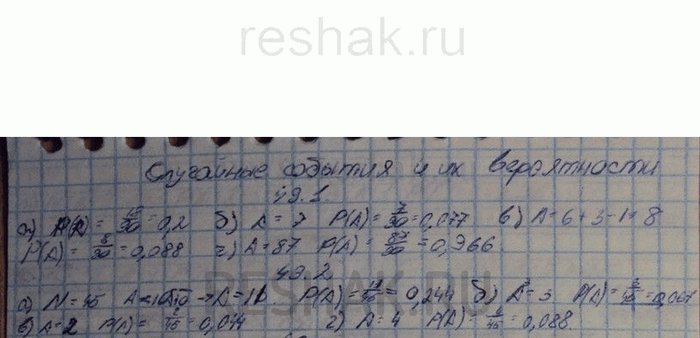 reshak.ru
Случайные события и их вероятности
49.1.
а) P(A) = 18/90 = 0,2 б) A = 7 P(A) = 7/90 = 0,077 в) A = 6 + 3 - 1 = 8
P(A) = 8/90 = 0,088 г) A = 87 P(A) = 87/90 = 0,966
RESHAK.RU
49.2
а) N = 45 → A = 11 P(A) = 11/45 = 0,244 б) A = 3 P(A) = 3/45 = 0,067
в) A = 2 P(A) = 2/45 = 0,044 г) A = 4 P(A) = 4/45 = 0,088